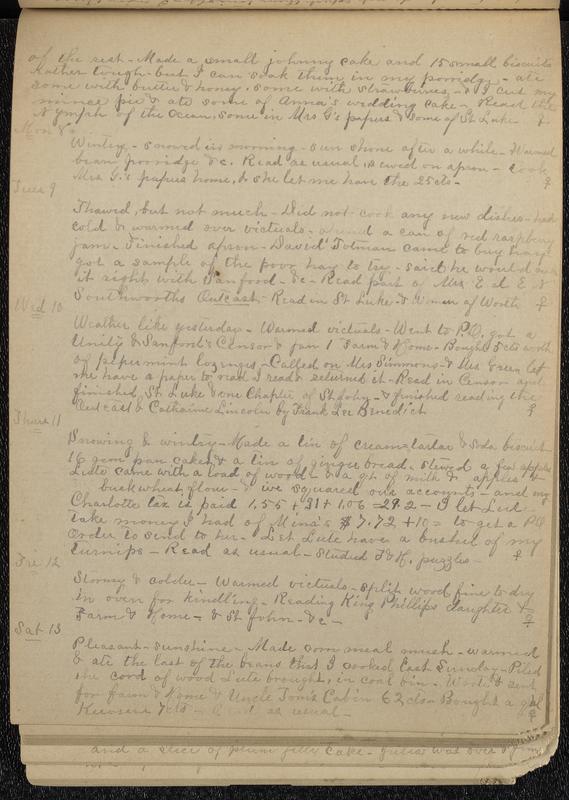 of the rest - Made a small johnny cake and 15 small biscuits
Rather tough - but I can soak them in my porridge - ate
some with butter & honey, some with strawberries, - & I cut my
mince pie & ate some of Anna's wedding cake - Read the
Nymph of the Ocean, some in Mrs G's papers & some of St Luke -
Mon 8
Wintery - snowed in morning - sun shone after a while - Warmed
bean porridge &c. Read as usual, sewed on apron - took
Mrs G.'s papers home, & she let me have the 25cts -
Tues 9
Thawed, but not much - Did not cook any new dishes - had
cold & warmed over victuals - a can of red raspberry
jam - Finished apron - David Tolman came to buy hay
got a sample of the poor hay to try - said he would
it right with Sanford - &c - Read part of Mrs E d E N
Southworths Outcast - Read in St Luke - & Women of Worth
Wed 10
Weather like yesterday - Warmed victuals - Went to P.O. got a
Unity & Sanford's Censor & Jan 1 Farm & Home - Bought 5cts worth
of peppermint lozenges - Called on Mrs Simmons - & Mrs Green let
me have a paper to read I read & returned it - Read in Censor and
finished St Luke & one Chapter of St John - & finished reading the
Outcast & Cathaine Lincoln by Frank Lee Benedict
Thurs 11
Snowing & wintry - Made a tin of cream-tartar & soda biscuit
16 gem pan cakes & a tin of ginger bread - stewed a few apples
Lute came with a load of wood - & a qt of milk & apples &
buckwheat flour - & we squared our accounts - and my
Charlotte tax is paid 1.55 + .31 + 1.06 = 2.92 - I let Lute
take money I had of Mina's $7.72 + 10 = to get a P.O
Order to send to her - Let Lute have a bushel of my
Turnips - Read as usual - Studied F & H. puzzles -
Fri 12
Stormy & colder - Warmed victuals - split wood fine to dry
in oven for kindling - Reading King Phillips daughter &
Farm & Home - & St John - &c -
Sat 13
Pleasant - sunshine - Made corn meal mush - warmed
& ate the last of the beans that I cooked Last Sunday - Piled
the cord of wood Lute brought, in coal bin - &  sent
for Farm & Home & Uncle Tom's Cabin 62cts - Bought a gal
Kerosene 7cts - Read as usual -
and a slice of plum jelly cake -